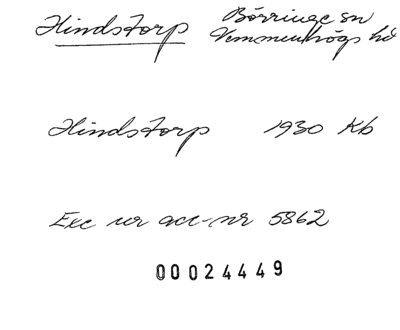 Hindstorp Börringe sn
Vemmenhögs hd
Hindstorp 1930 Kb
Exc ur acc-nr 5862
00024449